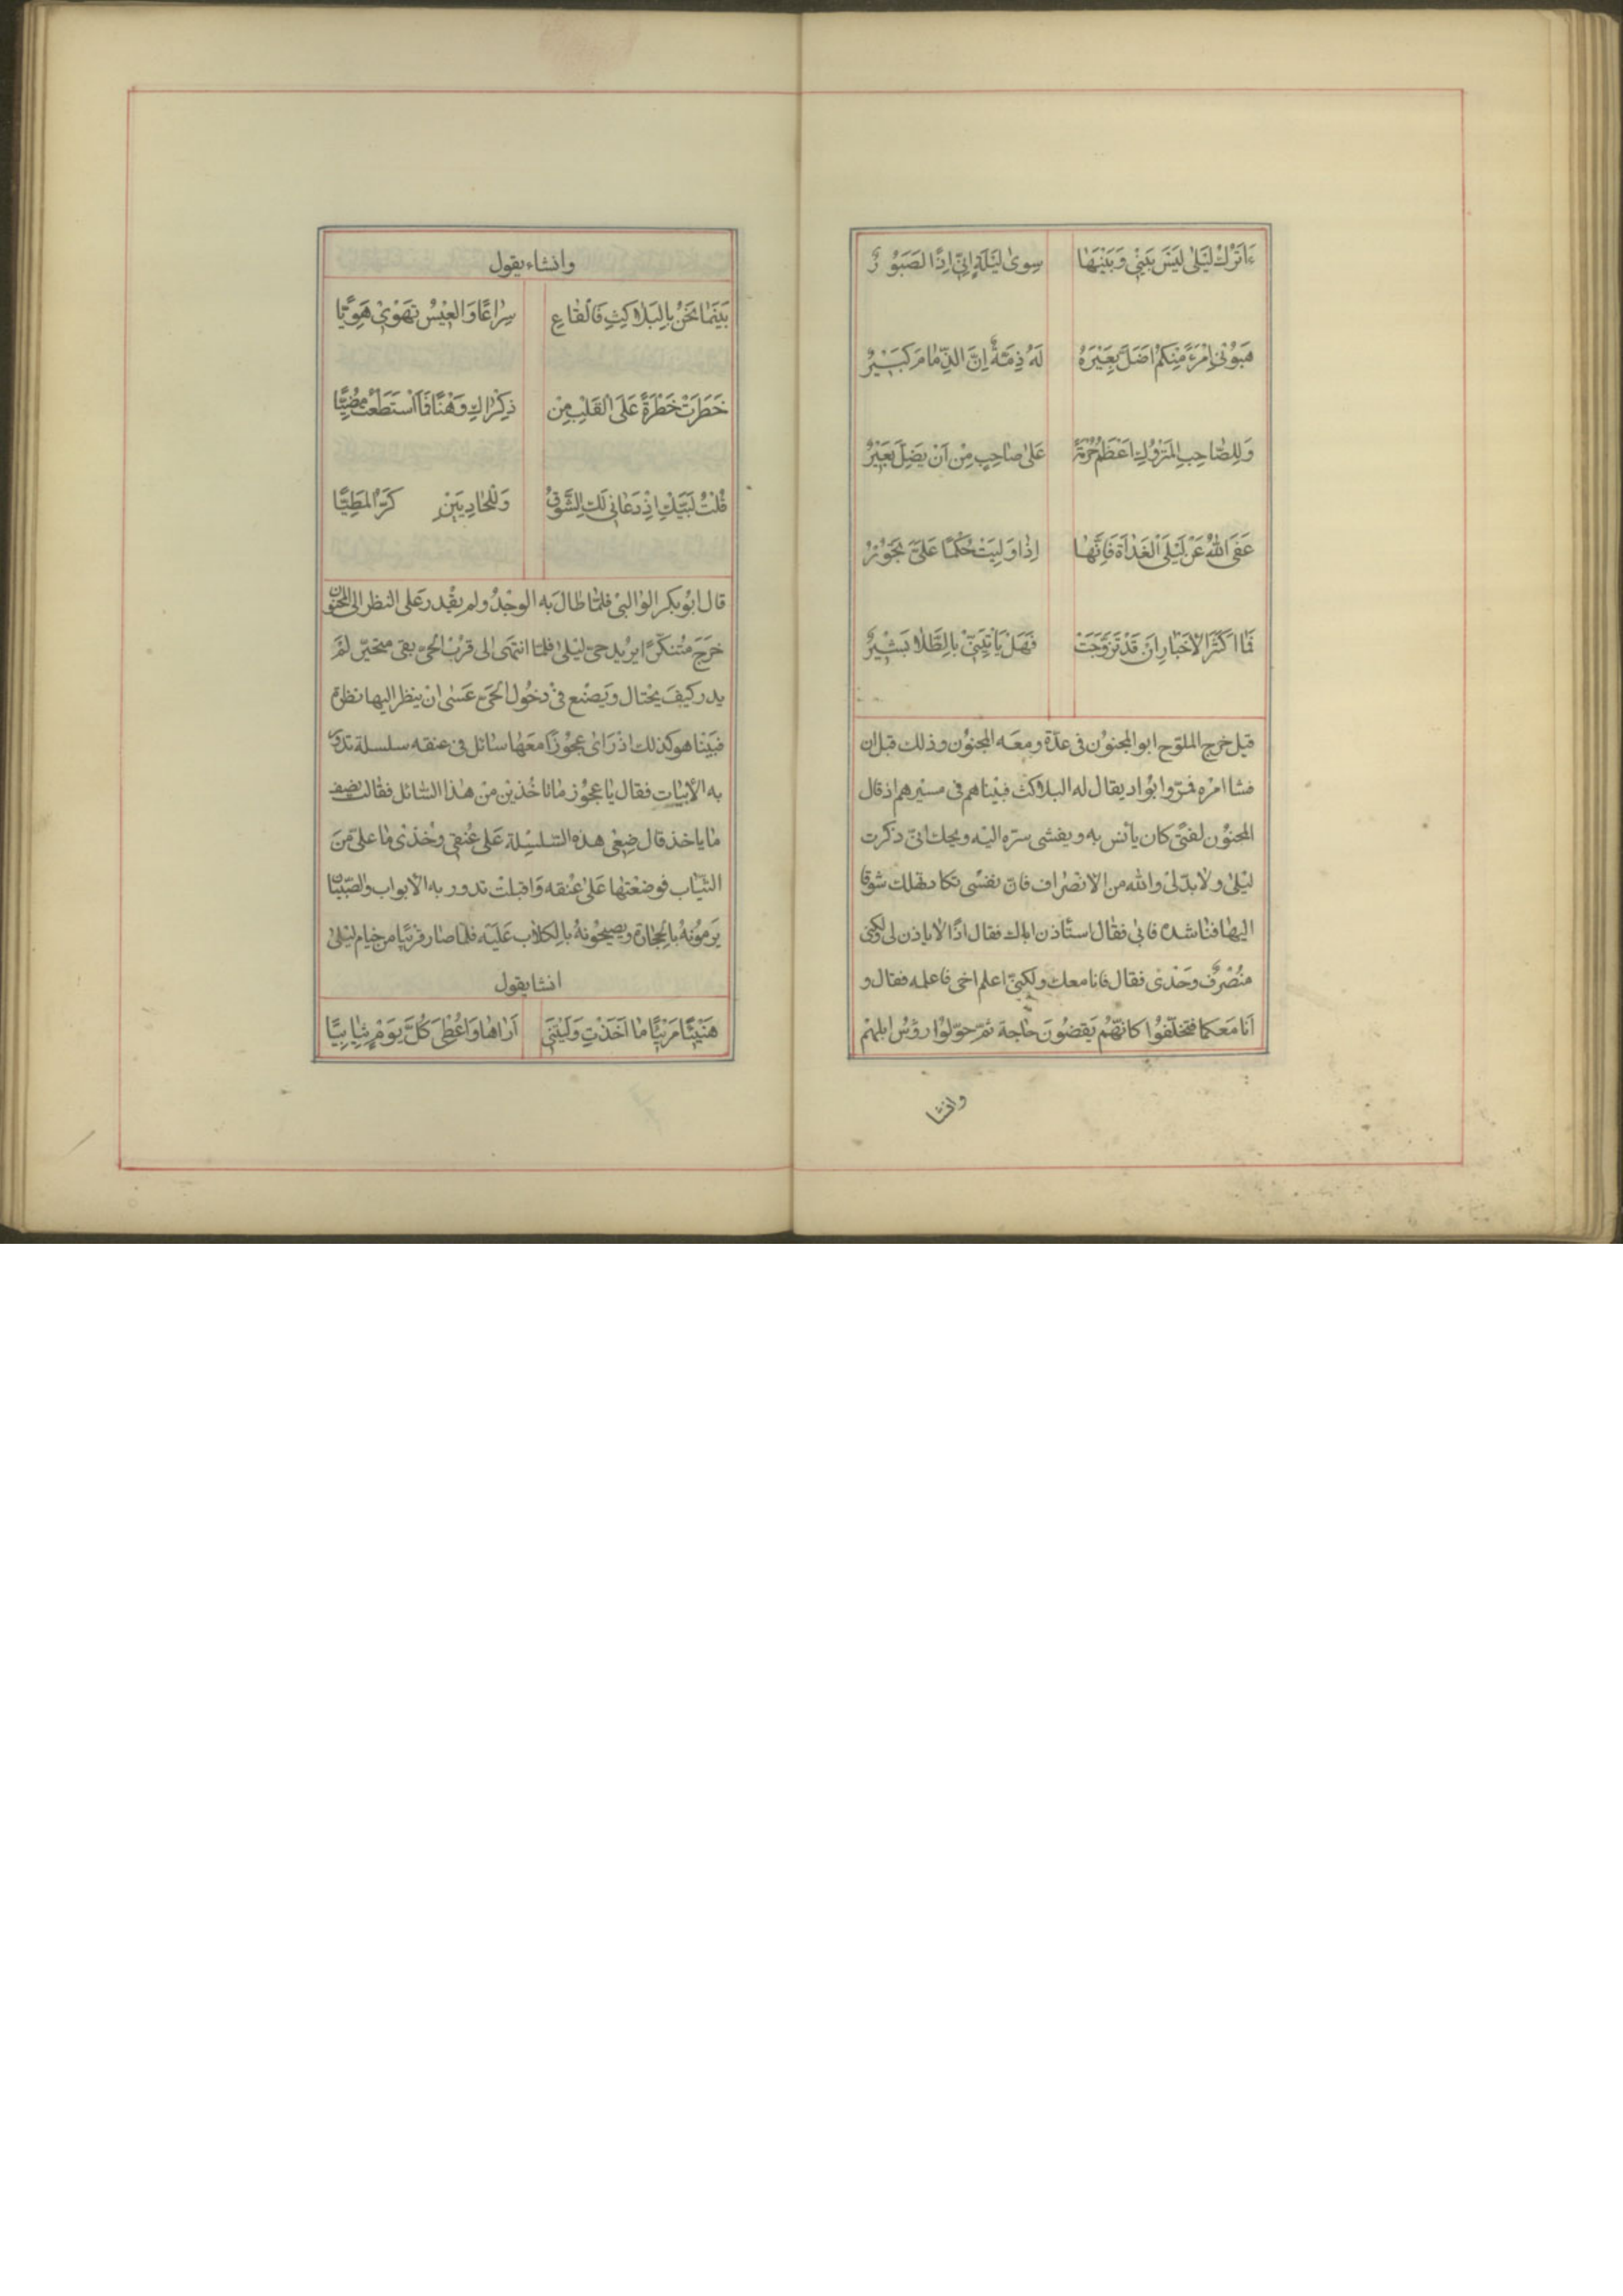 ءَاَتْرُكُ لَيْلىٰ لَيْسَ بَيْنِي وَبَيْنَهَا سِوىٰ لَيْلَةٍ اِنّي اِذًا لَصَبُوْرٌ
هَبُوْنِى امْرَءً مِنْكُمْ اَضَلَّ بَعِيْرَهُ لَهُ ذِمَّةٌ اِنَّ الذِّمَامَ كَبِيْرُ
وَلِلصَّاحِبِ الْمَتْرُوْكِ اَعْظَمُ حُرْمَةً عَلىٰ صَاحِبٍ مِنْ اَنْ يَضِلَّ بَعِيْرُ
عَفَى اللهُ عَنْ لَيْلَى الْغَدٰاةَ فَاِنَّهَا اِذٰا وَلِيَتْ حُكْمًا عَلَيَّ تَجُوْرُ
فَمٰا اَكْثَرَ الْاَخْبٰارِ اَنْ قَدْ تَزَوَّجَتْ فَهَلْ يَأْتِيَنِّي بِالطَّلٰاقِ بَشِيْرُ
قيل خرج الملوّح ابو المجنوُن فى عدّة ومعَه المجنوُن وذلك قبل ان
فشا امرُه فمرّوا بوٰاد يقال له البلاكث فبيناهم فى مسيرهم اذ قال
المجنوُن لفتىً كان يأنس به ويفشى سرّه اليه ويحك انّى ذكرت
ليلىٰ ولابدّ لى والله من الانصراف فانّ نفسى تكاد تهلك شوقا
اليهٰا فنٰاشده فابى فقٰال استأذن اباك فقال اذًا لا ياذن لى ولكنى
منُصْرفٌ وحْدى فقال فانا معك ولكنّى اعلم اخى فاعلمه فقال و
اَنَا مَعَكما فتخلّفوُا كانّهُم يَقضوُنَ حٰاجة ثمّ حوّلوُا رؤسُ ابلهمْ
وانشا
وانشاء يقول
بَيْنَمٰا نَحْنُ بِالْبَلاَكِثِ فَالْقٰاعِ سِرٰاعًا وَالْعِيْسُ تَهْوِىْ هَوِيًّا
خَطَرَتْ خَطْرَةٌ عَلَى الْقَلْبِ مِنْ ذِكْرٰاكِ وَهْنًا فَمَا اسْتَطَعْتُ مُضِيًّا
قُلْتُ لَبَّيْكِ اِذْ دَعٰانِى لَكِ الشَّوْقُ وَلِلْحٰادِيَيْنِ كَرَّ الْمَطِيّا
قال ابوُبكر الوٰالبىّ فلمّا طٰالَ به الوجْدُ ولم يقْدر عَلى النظر الى المجنوُن
خرَجَ مُتنكّرًا يريُد حىّ ليْلىٰ فلمّا انتهىٰ الى قرُب الحىّ بقى متحيّر لَمْ
يدر كيفَ يحْتال وَيَصْنع فى دخُول الحَى عَسٰى انْ ينظر اليها نظرة
فبَينا هو كذلك اذ رَاى عجوُزًا معَهٰا سٰائل فى عنقه سلسلة تدور
به الأبيٰات فقال يٰا عجوُز مٰا تاخُذيْن منْ هٰذا السّائل فقالت نصف
مٰا ياخذ قال ضعْى هذه السّلسِلة عَلى عُنقى وخُذى مٰا علىّ منَ
الثيّاب فوضعَتهٰا عَلىٰ عُنقه وَاقبلتْ تدوُر به الأبواب والصّبيٰان
يَرموُنهُ بالحِجٰارة ويصيحُونهُ بالكلاب عَليْه فلمّا صٰار قريبًا من خيٰام ليْلىٰ
انشا يقول
هَنِيْئًا مَرِيْئًا مٰا اَخَذْتِ وَلَيْتَنِي اَرٰاهٰا وَاُعْطىٰ كُلَّ يَوْمٍ ثِيٰابِيًا